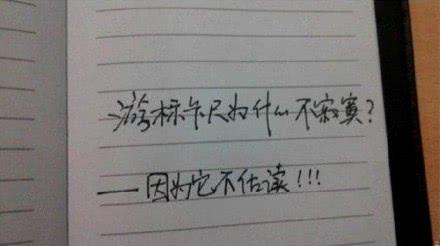 游标卡尺为什么不寂寞？
——因为它不估读！！！